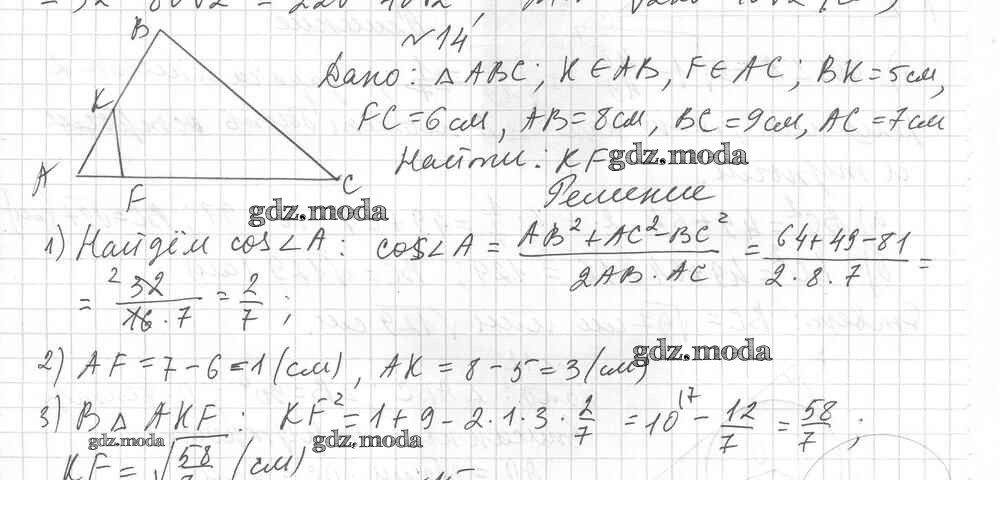 №14
B
Дано: △ ABC; K ∈ AB, F ∈ AC; BK = 5 см,
K
FC = 6 см, AB = 8 см, BC = 9 см, AC = 7 см
Найти: KF gdz.moda
A F C
Решение
gdz.moda
1) Найдём cos∠A: cos∠A = (AB² + AC² − BC²)/(2AB · AC) = (64 + 49 − 81)/(2 · 8 · 7) =
= ²32/(16 · 7) = 2/7;
2) AF = 7 − 6 = 1 (см), AK = 8 − 5 = 3 (см)
gdz.moda
3) В △ AKF: KF² = 1 + 9 − 2 · 1 · 3 · 2/7 = 10\17 − 12/7 = 58/7;
gdz.moda gdz.moda
KF = √58 (см)